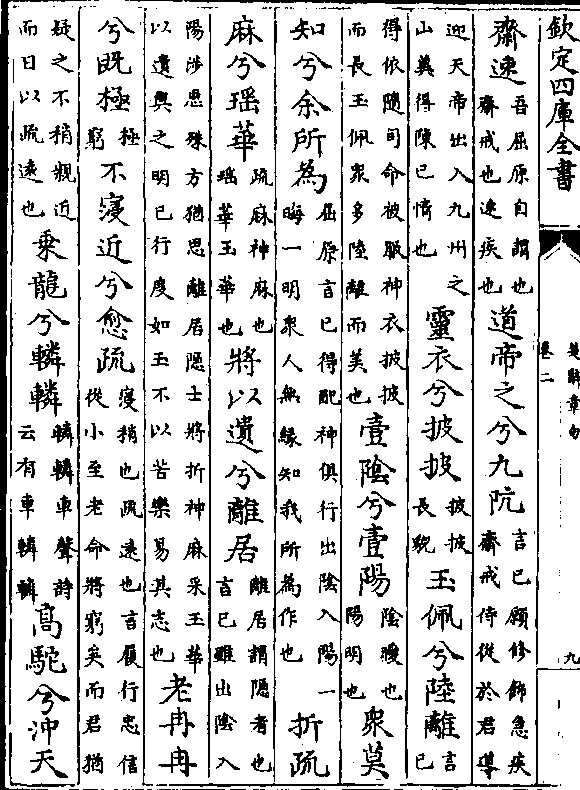 欽定四庫全書
楚辭章句
卷二
九
齋速吾屈原自謂也齋戒也速疾也道帝之兮九阬言已願修飾急疾齋戒侍從於君導
迎天帝出入九州之山冀得陳已情也靈衣兮披披披披長貌玉佩兮陸離言已
得依隨司命被服神衣披披而長玉佩衆多陸離而美也壹陰兮壹陽陰晦也陽明也衆莫
知兮余所為屈原言已得配神俱行出陰入陽一晦一明衆人無緣知我所為作也折疏
麻兮瑤華疏麻神麻也瑤華玉華也將以遺兮離居離居謂隱者也言已雖出陰入
陽涉歷殊方猶思離居隱士將折神麻采玉華以遺與之明已行度如玉不以苦樂易其志也老冉冉
兮既極極窮不寖近兮愈疏寖稍也疏遠也言履行忠信從小至老命將窮矣而君猶
疑之不稍親近而日以疏遠也乘龍兮轔轔轔轔車聲詩云有車轔轔高駝兮沖天